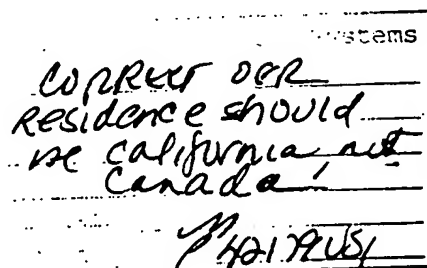 stems
CORRECT OCR
Residence should
be california not
Canada!
P42179US1